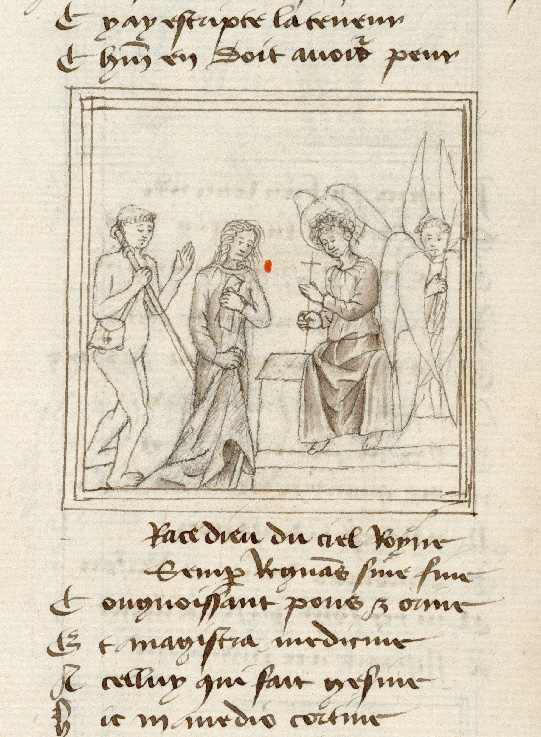 Et y ay escripte la teneur
Et hũ en doit avoir peur
Race dieu du ciel Royne
Semp Regnãs sine fine
Congnoissant pous & orine
Et magistra medicine
A celluy qui fait gesine
Hic in medio cortine